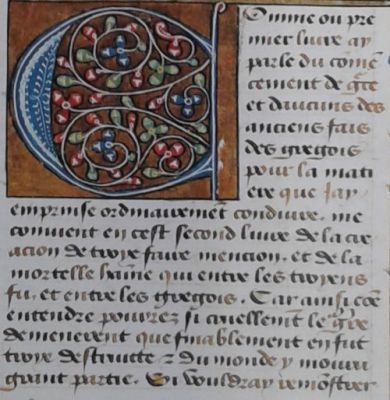 Comme ou pre
mier livre ay
parle du com̄e
cement de gr̄e
et daucuns des
anciens fais
des gregois
pour la mati
ere que jay
emprinse ordinairem̄t conduire. me
convient en cest second livre de la cre
acion de troye faire mencion. et de la
mortelle haine qui entre les troyens
fu. et entre les gregois. Car ainsi com̄e
entendre pourrez si cruellement le gr̄re
demenerent que finablement en fut
troye destruitte ⁊ du monde y mouru
grant partie. Si vouldray remonstrer